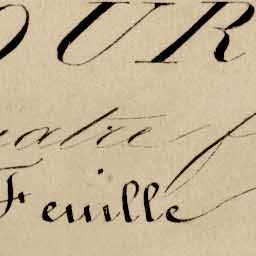 OUR
uatre f
Feuille